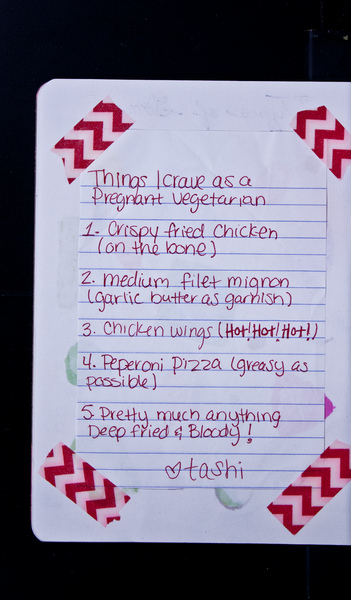 Things I crave as a
Pregnant Vegetarian
1. Crispy fried Chicken
(on the bone)
2. medium filet mignon
(garlic butter as garnish)
3. Chicken wings (Hot! Hot! Hot!)
4. Peperoni Pizza (greasy as
possible)
5. Pretty much anything
Deep fried & Bloody!
♡tashi